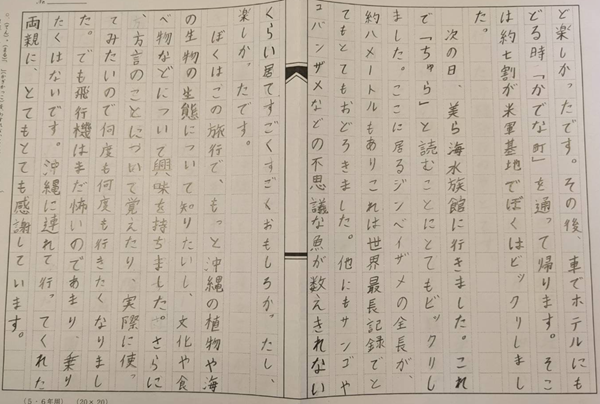 ど楽しかったです。その後、車でホテルにも
どる時「かでな町」を通って帰ります。そこ
は約七割が米軍基地でぼくはビックリしまし
た。
次の日、美ら海水族館に行きました。これ
で「ちゅら」と読むことにとてもビックリし
ました。ここに居るジンベイザメの全長が、
約八メートルもありこれは世界最長記録でと
てもとてもおどろきました。他にもサンゴや
コバンザメなどの不思議な魚が数えきれない
くらい居てすごくすごくおもしろかったし、
楽しかったです。
ぼくはこの旅行で、もっと沖縄の植物や海
の生物の生態について知りたいし、文化や食
べ物などについて興味を持ちました。さらに
、方言のことについて覚えたり、実際に使っ
てみたいので何度も何度も行きたくなりまし
た。でも飛行機はまだ怖いのであまり、乗り
たくはないです。沖縄に連れて行ってくれた
両親に、とてもとても感謝しています。
(5・6年用) (20×20)